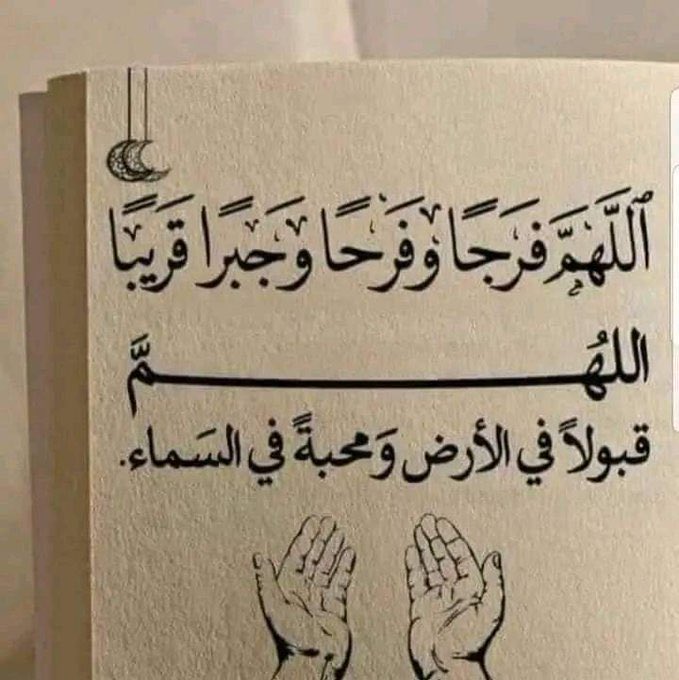 اللَّهُمَّ فَرَجًا وَفَرَحًا وَجَبْرًا قَرِيبًا
اللهُـــــــــمَّ
قبولاً في الأرض وَمحبةً في السَماء.